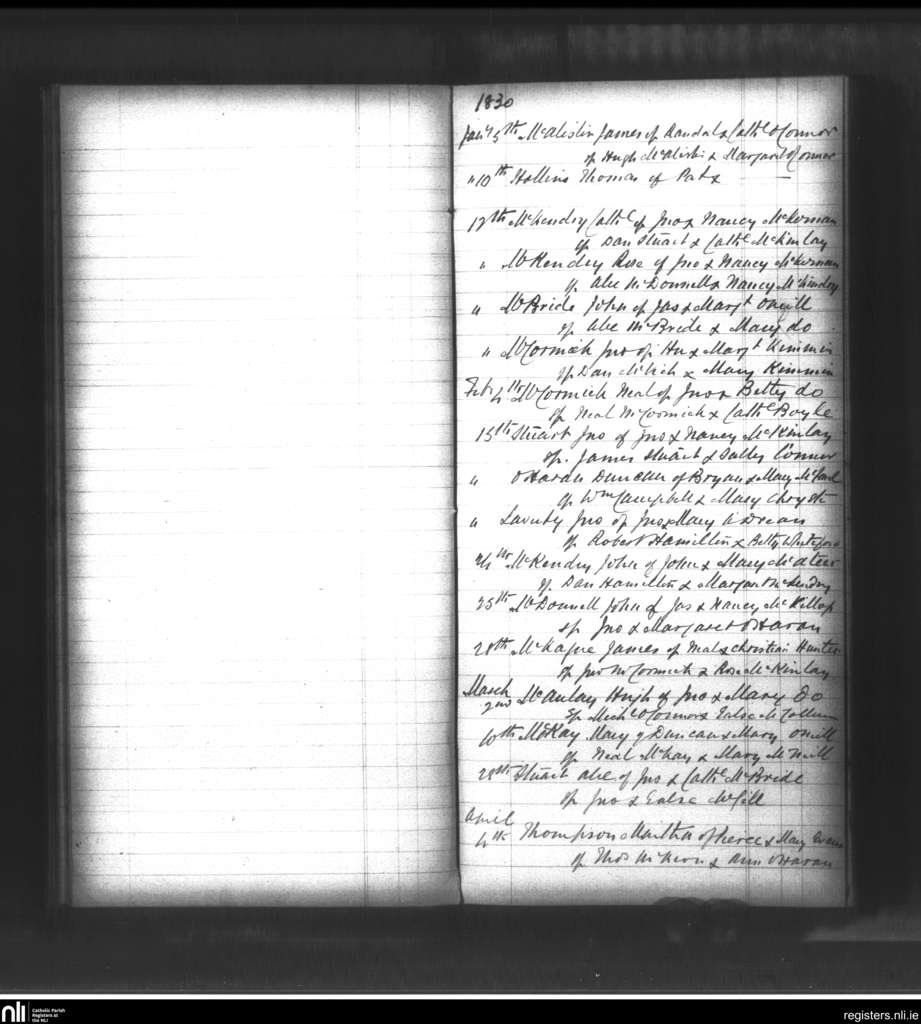 1830
Jany 5th McAlistir James of Randal & Cathe O'Connor
sp Hugh McAlistir & Margaret O'Connor
" 10th Hollins Thomas of Pat &
12th McKendry Cathe of Jno & Nancy McKernan
sp Dan Stuart & Cathe McKinlay
" McKendry Rose of Jno & Nancy McKernan
sp Alic McDonnell & Nancy McKendry
" McBride John of Jas & Margt Oneill
sp Alic McBride & Mary do
" McCormick Jno of Hu & Margt Kimmin
sp Dan & Mary Kimmin
Feb 4th McCormick Neal of Jno & Betty do
sp Neal McCormick & Cathe Boyle
15th Stuart Jno of Jno & Nancy McKinlay
sp. James Stuart & Salley Connor
" OHaran Duncan of Bryan & Mary
sp Wm Campbell & Mary
" Laverty Jno of Jno & Mary
sp Robert Hamillin & Betty
24th McKendry John of John & Mary McAteer
sp Dan Hamillin & Margaret McKendry
25th McDonnell John of Jas & Nancy McKillop
sp Jno & Margaret OHaran
28th McKague James of Neal & Christian Hunter
sp Jno McCormick & Rose McKinlay
March
2nd McAulay Hugh of Jno & Mary Do
sp Michl OConnor & Ealse McCollum
10th McKay Mary of Duncan & Mary Oneill
sp Neal McKay & Mary McNeill
28th Stuart Alic of Jno & Cathe McBride
sp Jno & Ealse McGill
April
4th Thompson Martha of Pierce & Mary
sp Thos McKeon & Ann OHaran
nli
Catholic Parish
Registers at
the NLI
registers.nli.ie